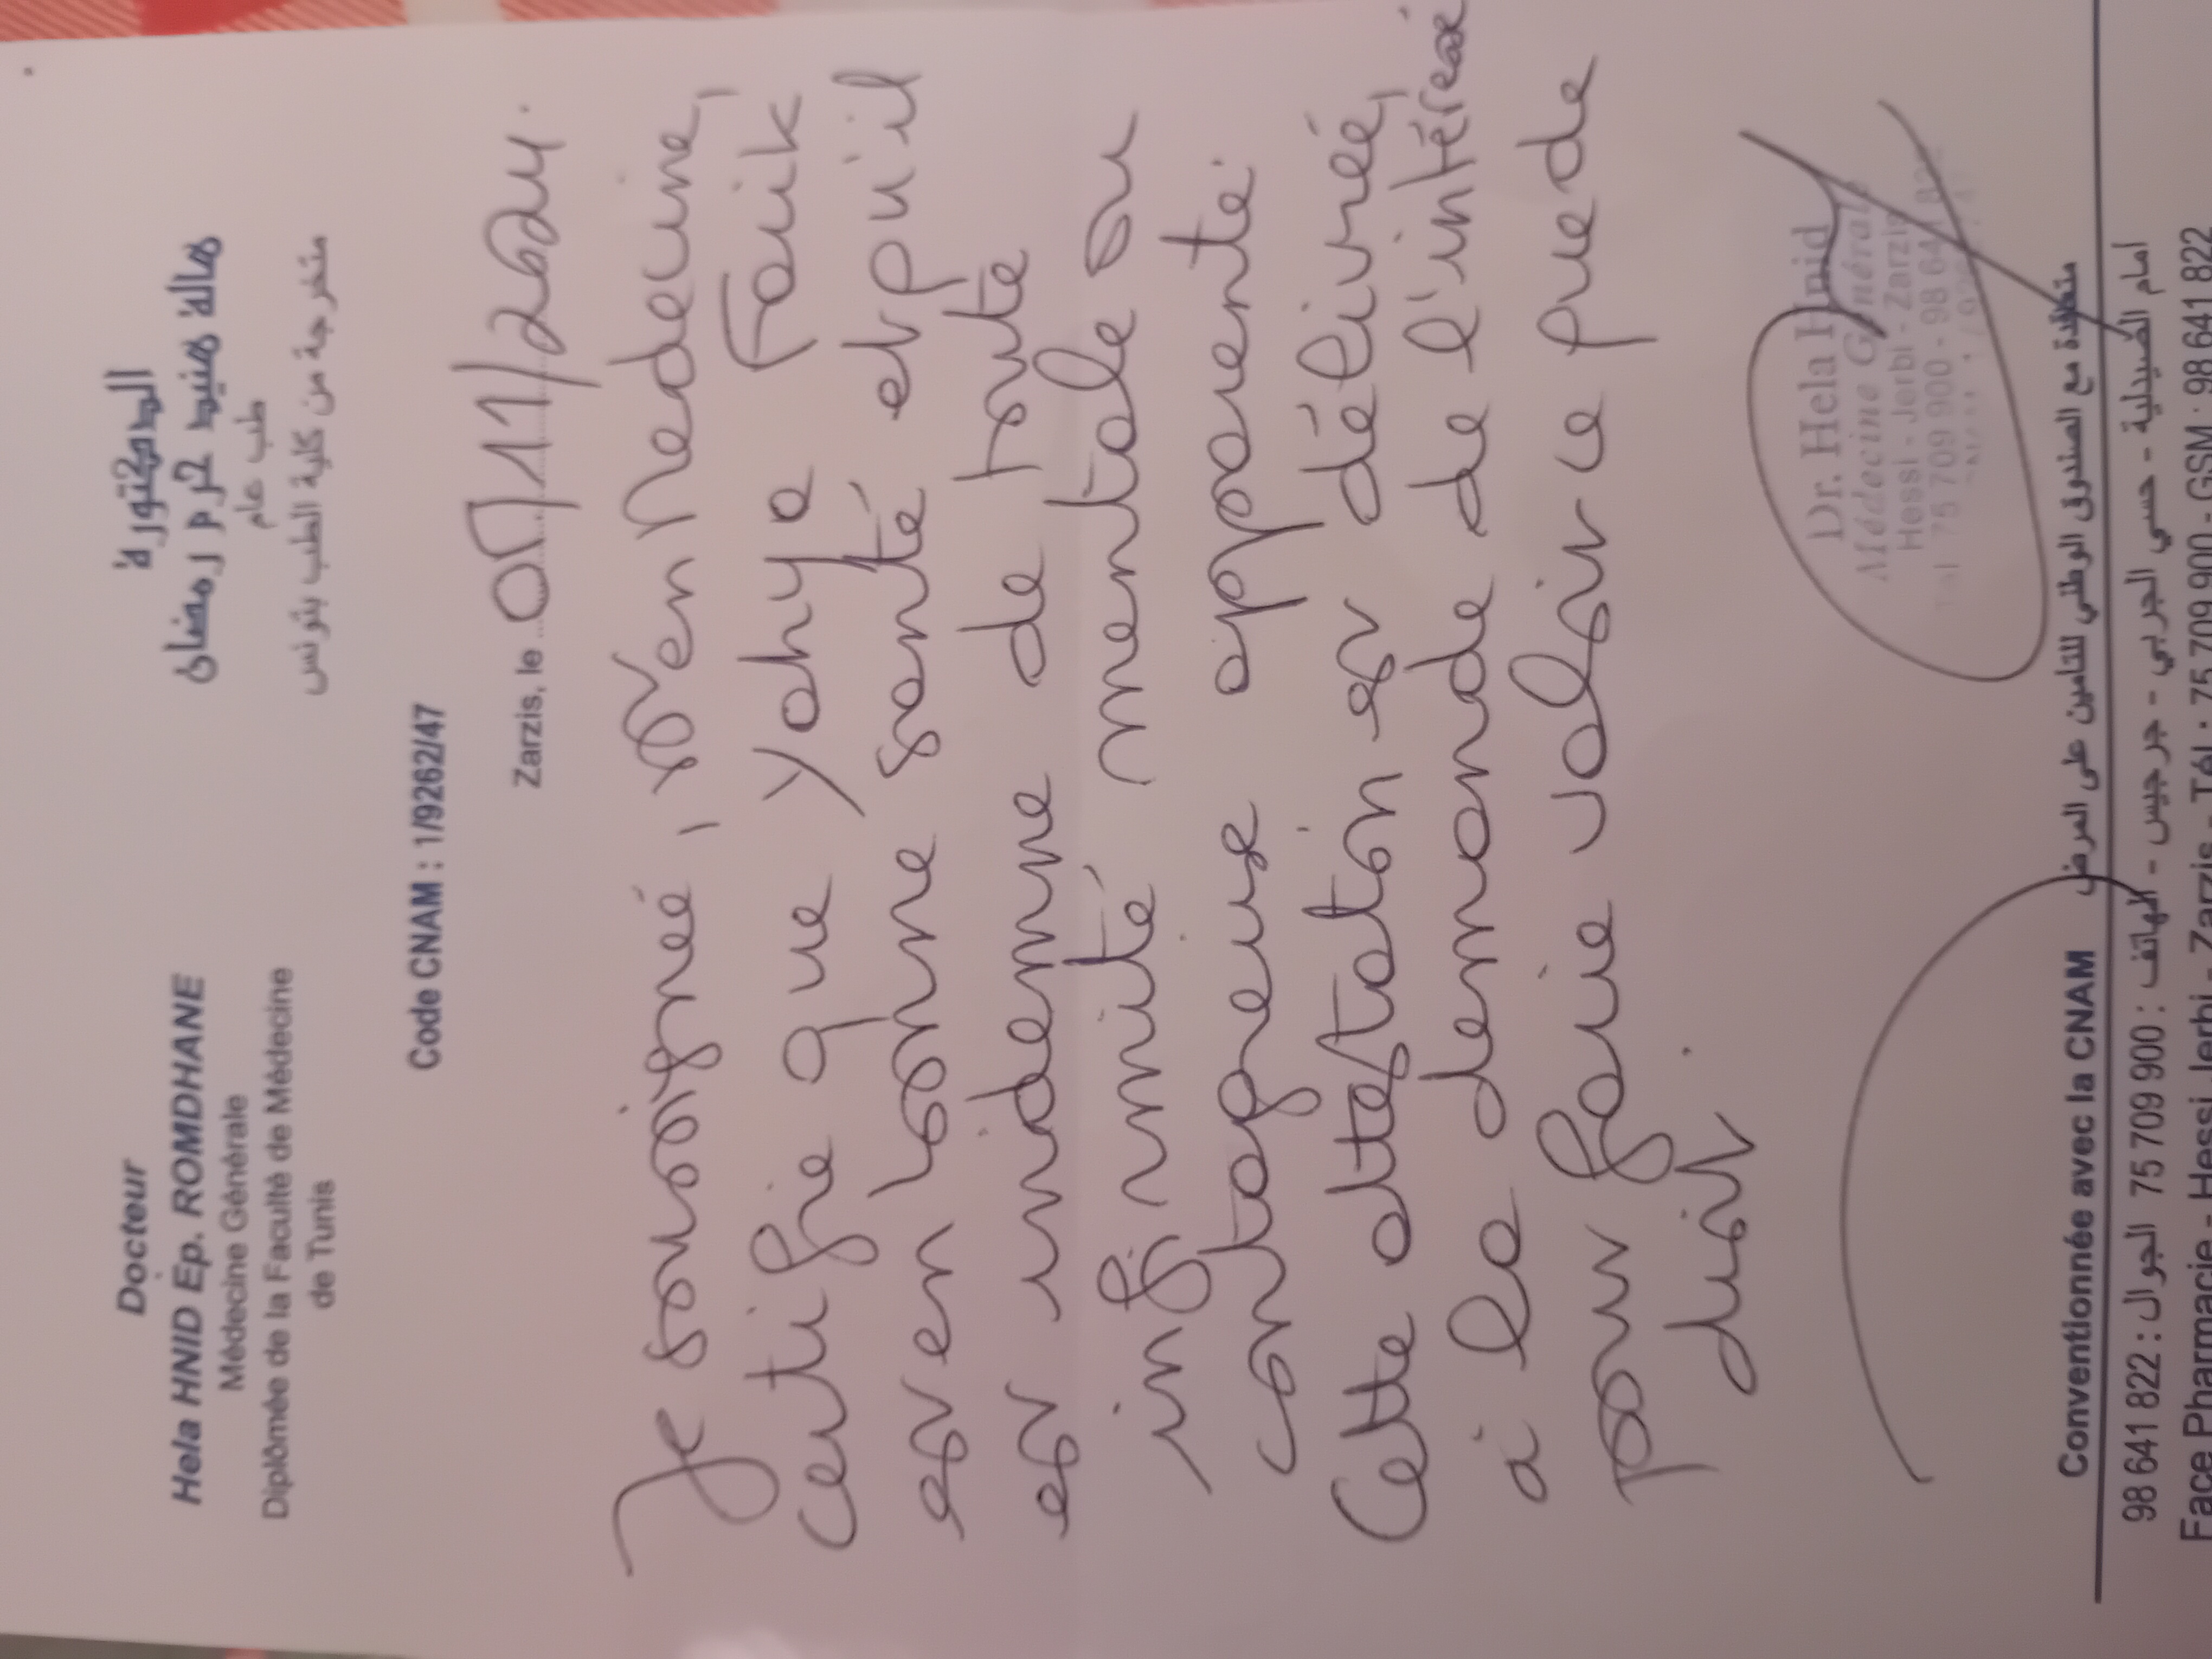 Docteur
Hela HNID Ep. ROMDHANE
Médecine Générale
Diplômée de la Faculté de Médecine
de Tunis
الدكتورة
هالة هنيد حرم رمضان
طب عام
متخرجة من كلية الطب بتونس
Code CNAM : 1/9262/47
Zarzis, le 07/11/2024.
Je sousigné, Dr en Medecine,
certifie que Yahya Faik
est en bonne santé et qu'il
est indemne de toute
infirmité mentale ou
contagieuse apparente.
Cette attestation est délivrée,
à la demande de l'intéressé
pour faire valoir ce que de
droit.
Dr. Hela Hnid
Médecine Générale
Hessi - Jerbi - Zarzis
75 709 900 - 98 641 822
Conventionnée avec la CNAM متعاقدة مع الصندوق الوطني للتأمين على المرض
أمام الصيدلية - حسي الجربي - جرجيس - الهاتف : 75 709 900 الجوال : 98 641 822
Face Pharmacie - Hessi Jerbi - Zarzis - Tél : 75 709 900 - GSM : 98 641 822